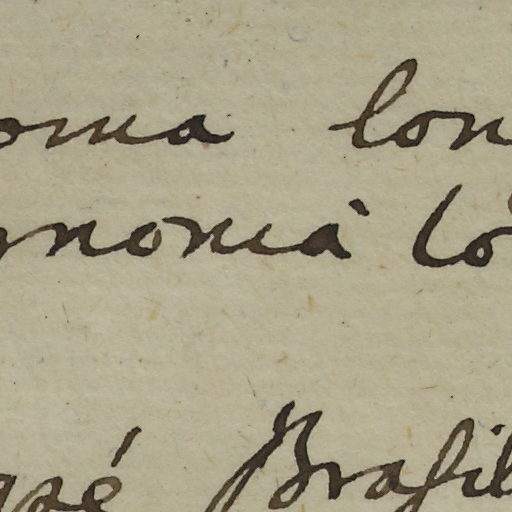 onia lon
gnonia lo
apé Brasil